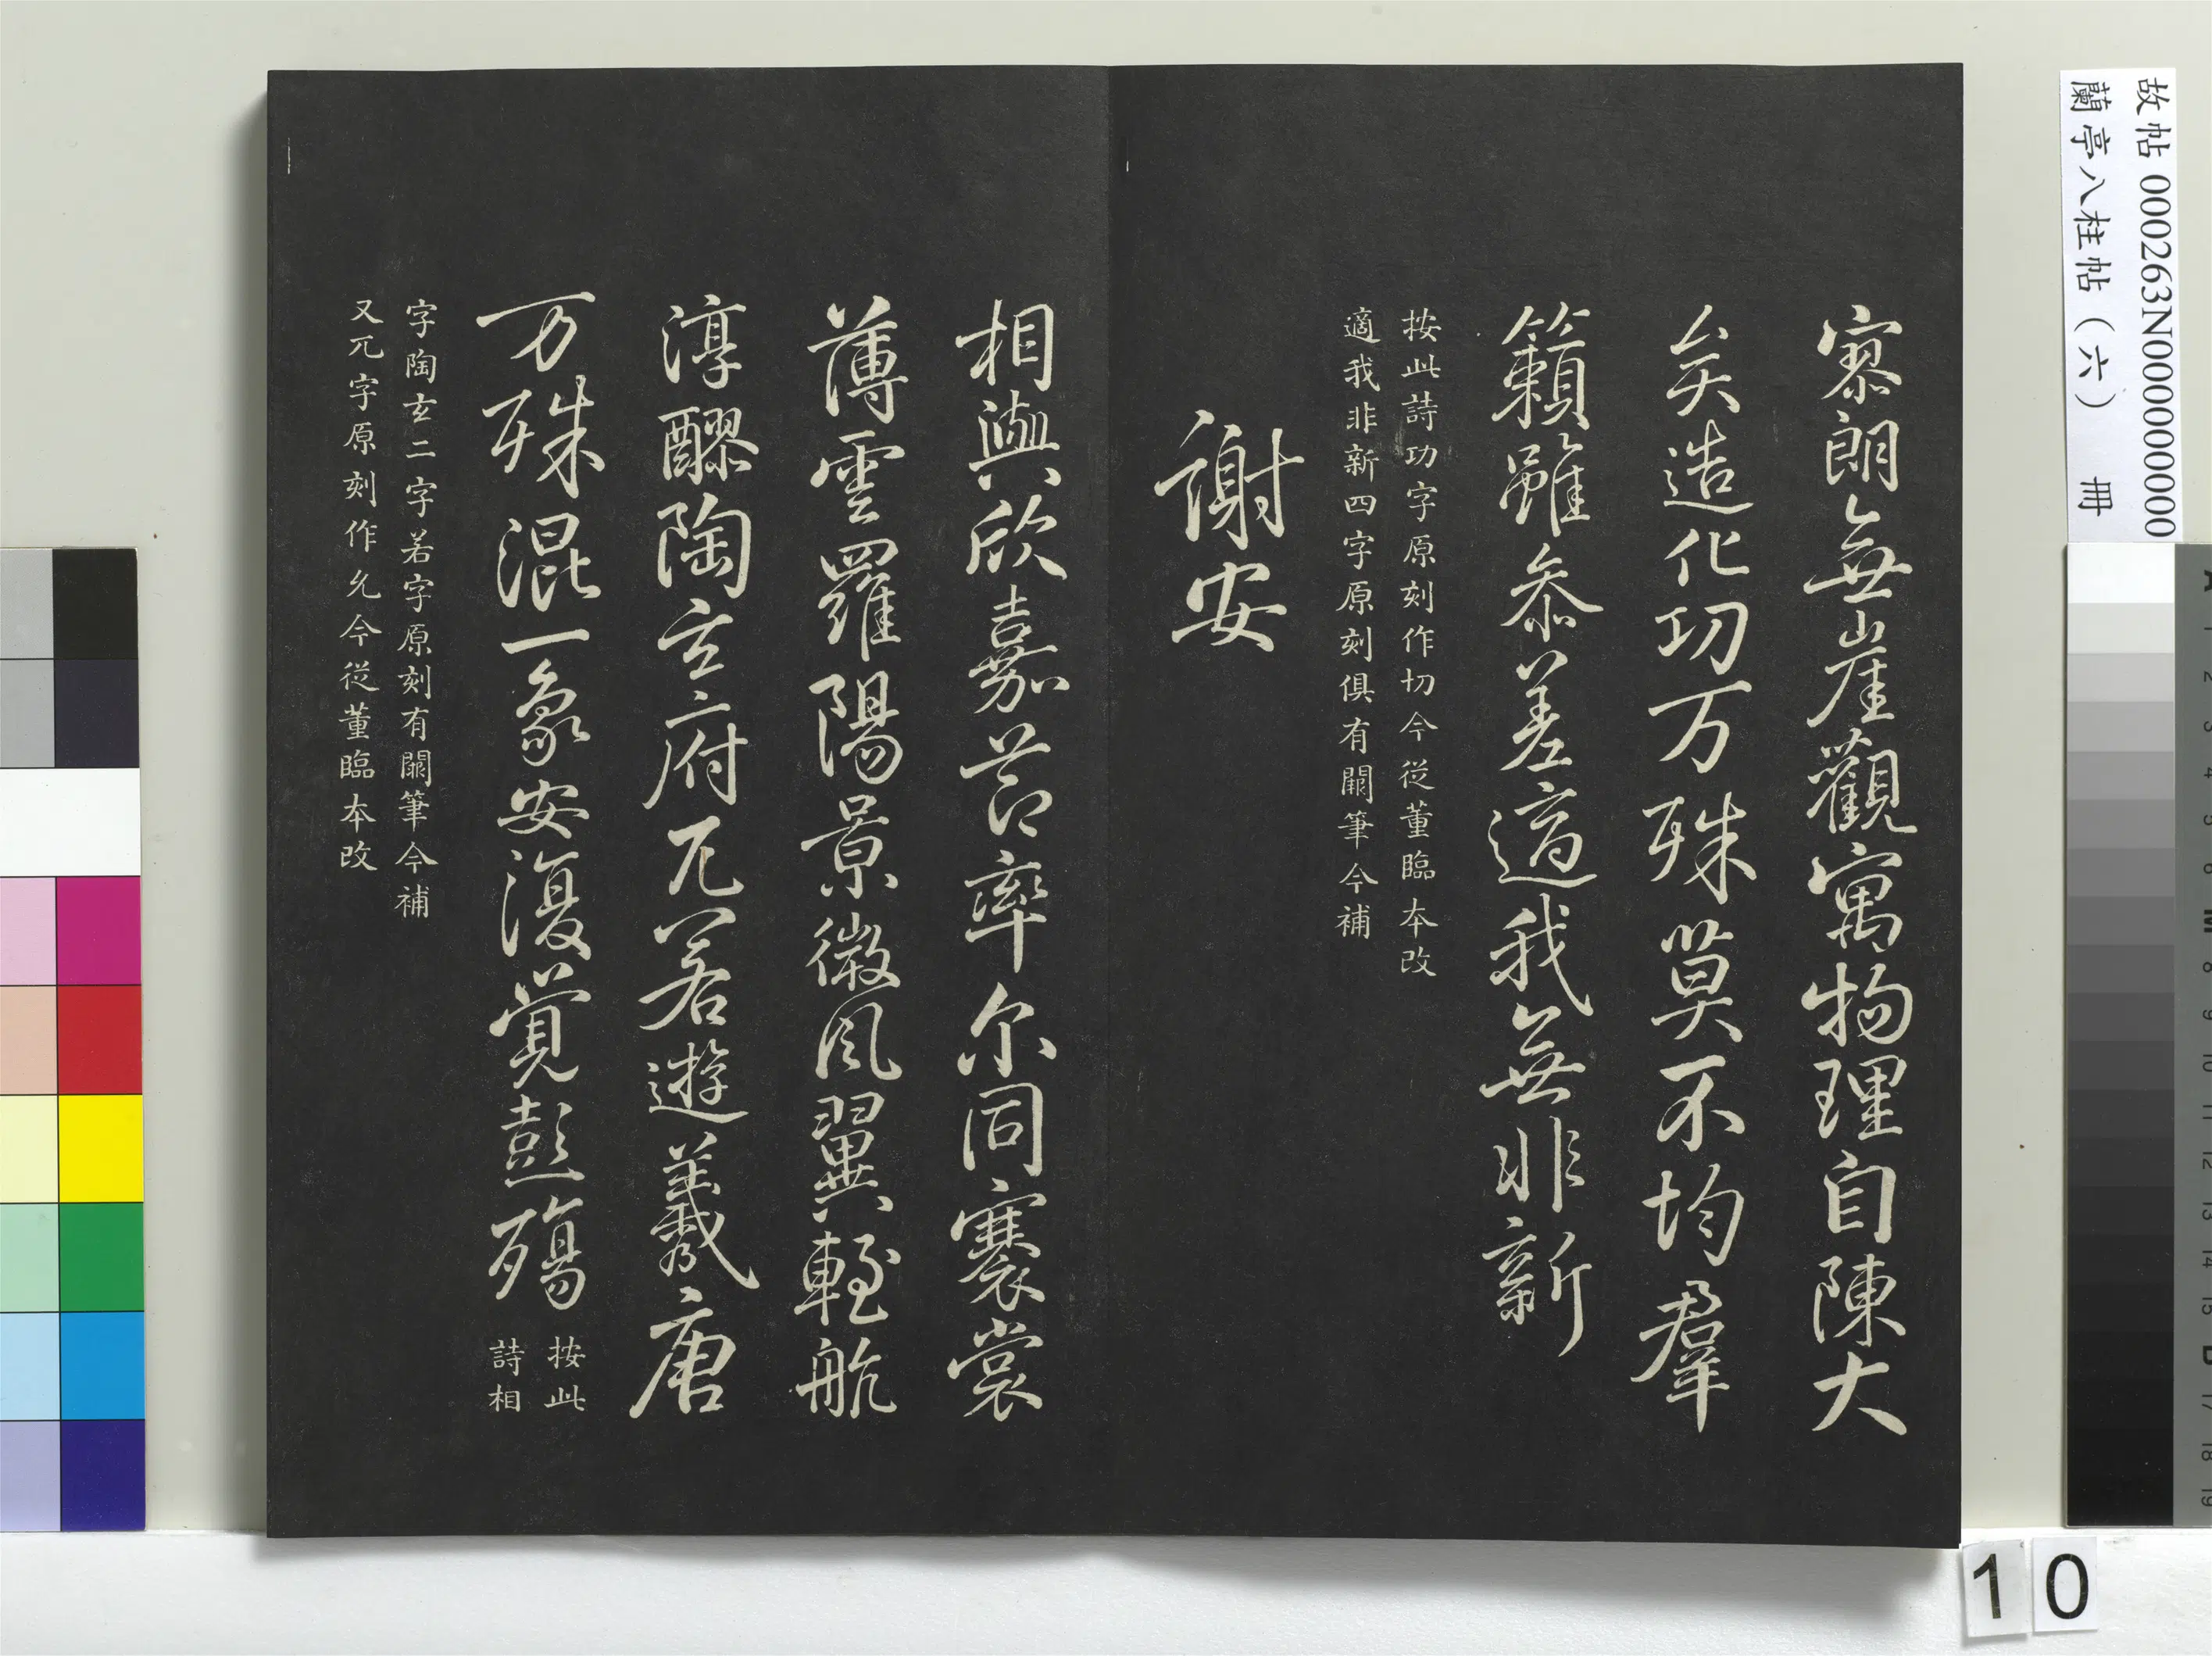 寥朗無崖觀寓物理自陳大
矣造化功万殊莫不均羣
籟雖叅差適我無非新
按此詩功字原刻作切今從董臨本改
適我非新四字原刻俱有闕筆今補
謝安
相與欣嘉莭率尔同褰裳
薄雲羅陽景微風翼輕航
淳醪陶玄府兀若遊羲唐
万殊混一象安復覚彭殤
按此
詩相
字陶玄二字若字原刻有闕筆今補
又兀字原刻作允今從董臨本改
故帖 000263N000000000
蘭亭八柱帖（六） 冊
10